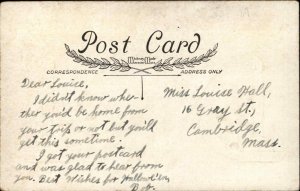 Post Card
CORRESPONDENCE
ADDRESS ONLY
Dear Louise,
I didn't know whe
ther you'd be home from
your trip or not but you'll
get this sometime.
I got your postcard
and was glad to hear from
you. Best Wishes for Hallowe'en,
Bob.
Miss Louise Hall,
16 Gray st,
Cambridge,
Mass.